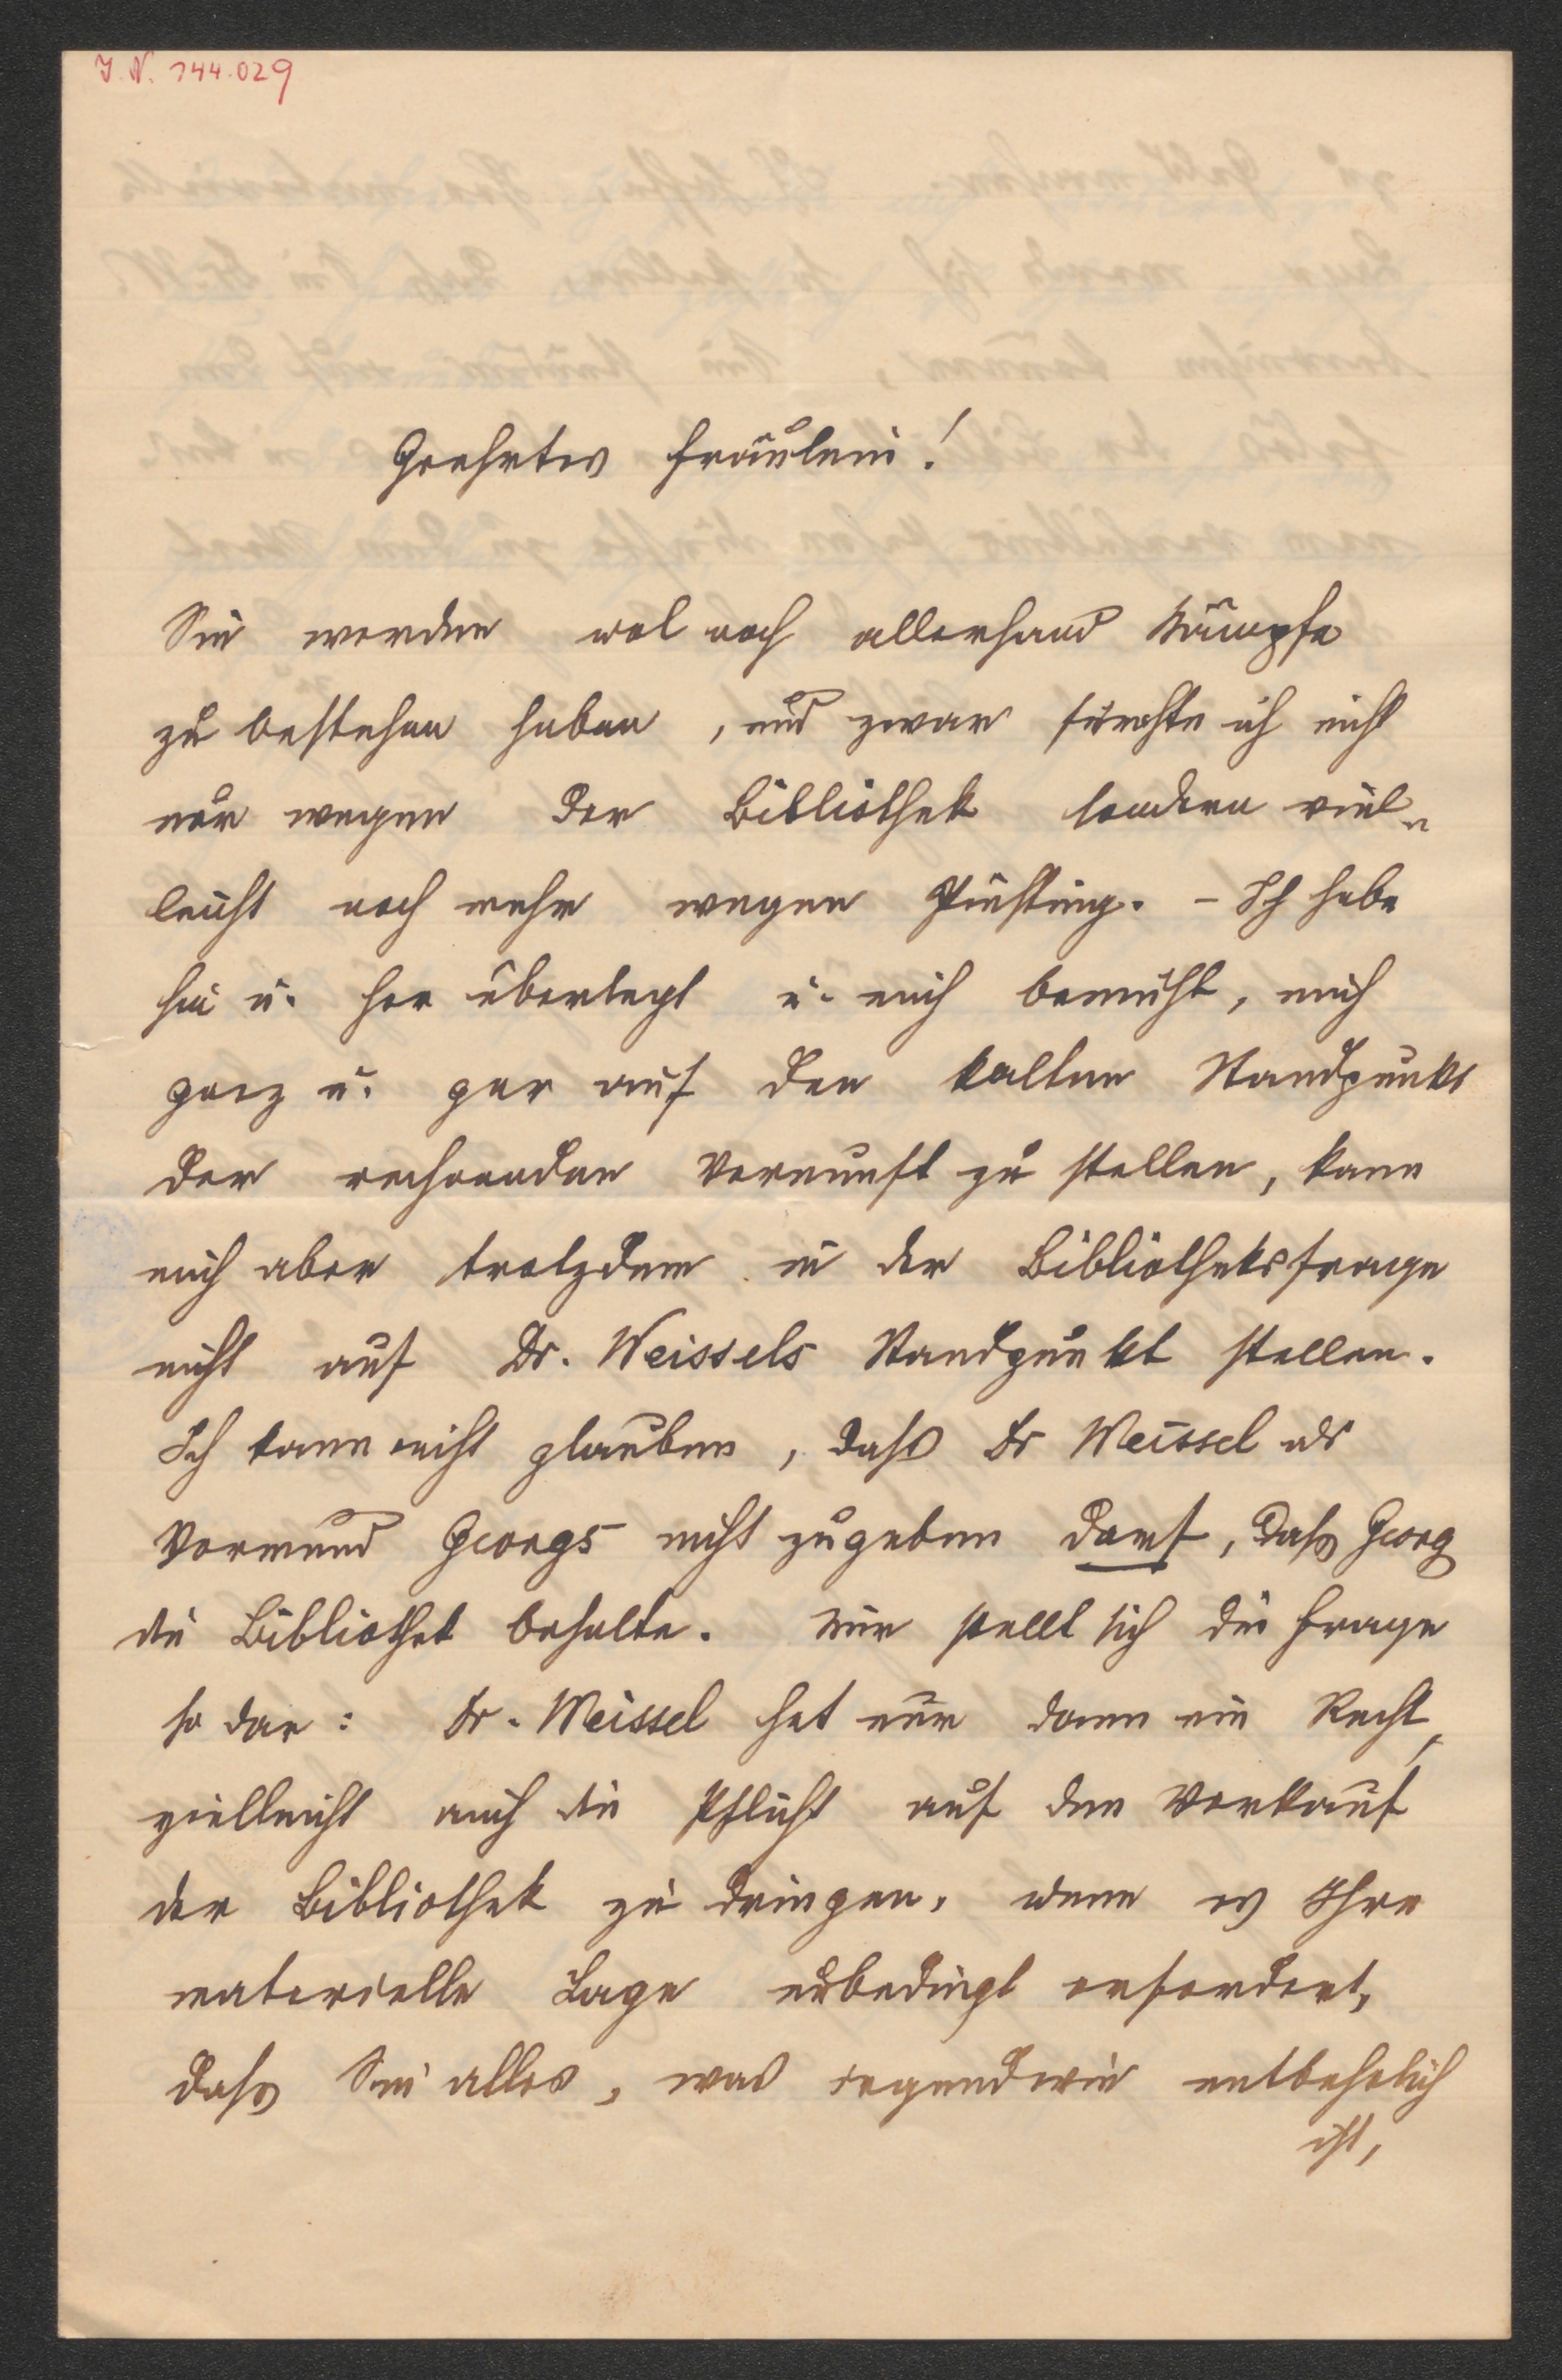 I. N. 144.029
Geehrtes Fräulein!
Sie werden wol noch allerhand Kämpfe
zu bestehen haben, und zwar fürchte ich nicht
nur wegen der Bibliothek sondern viel-
leicht noch mehr wegen Piesting. – Ich habe
hin u. her überlegt u. mich bemüht, mich
ganz u. gar auf den kalten Standpunkt
der rechnenden Vernunft zu stellen, kann
mich aber trotzdem in der Bibliotheksfrage
nicht auf Dr. Weissels Standpunkt stellen.
Ich kann nicht glauben, dass Dr Weissel als
Vormund Georgs nicht zugeben darf, dass Georg
die Bibliothek behalte. Mir stellt sich die Frage
so dar: Dr. Weissel hat nur dann ein Recht,
vielleicht auch die Pflicht auf den Verkauf
der Bibliothek zu dringen, wenn es Ihre
materielle Lage unbedingt erfordert,
dass Sie alles, was irgendwie entbehrlich
ist,